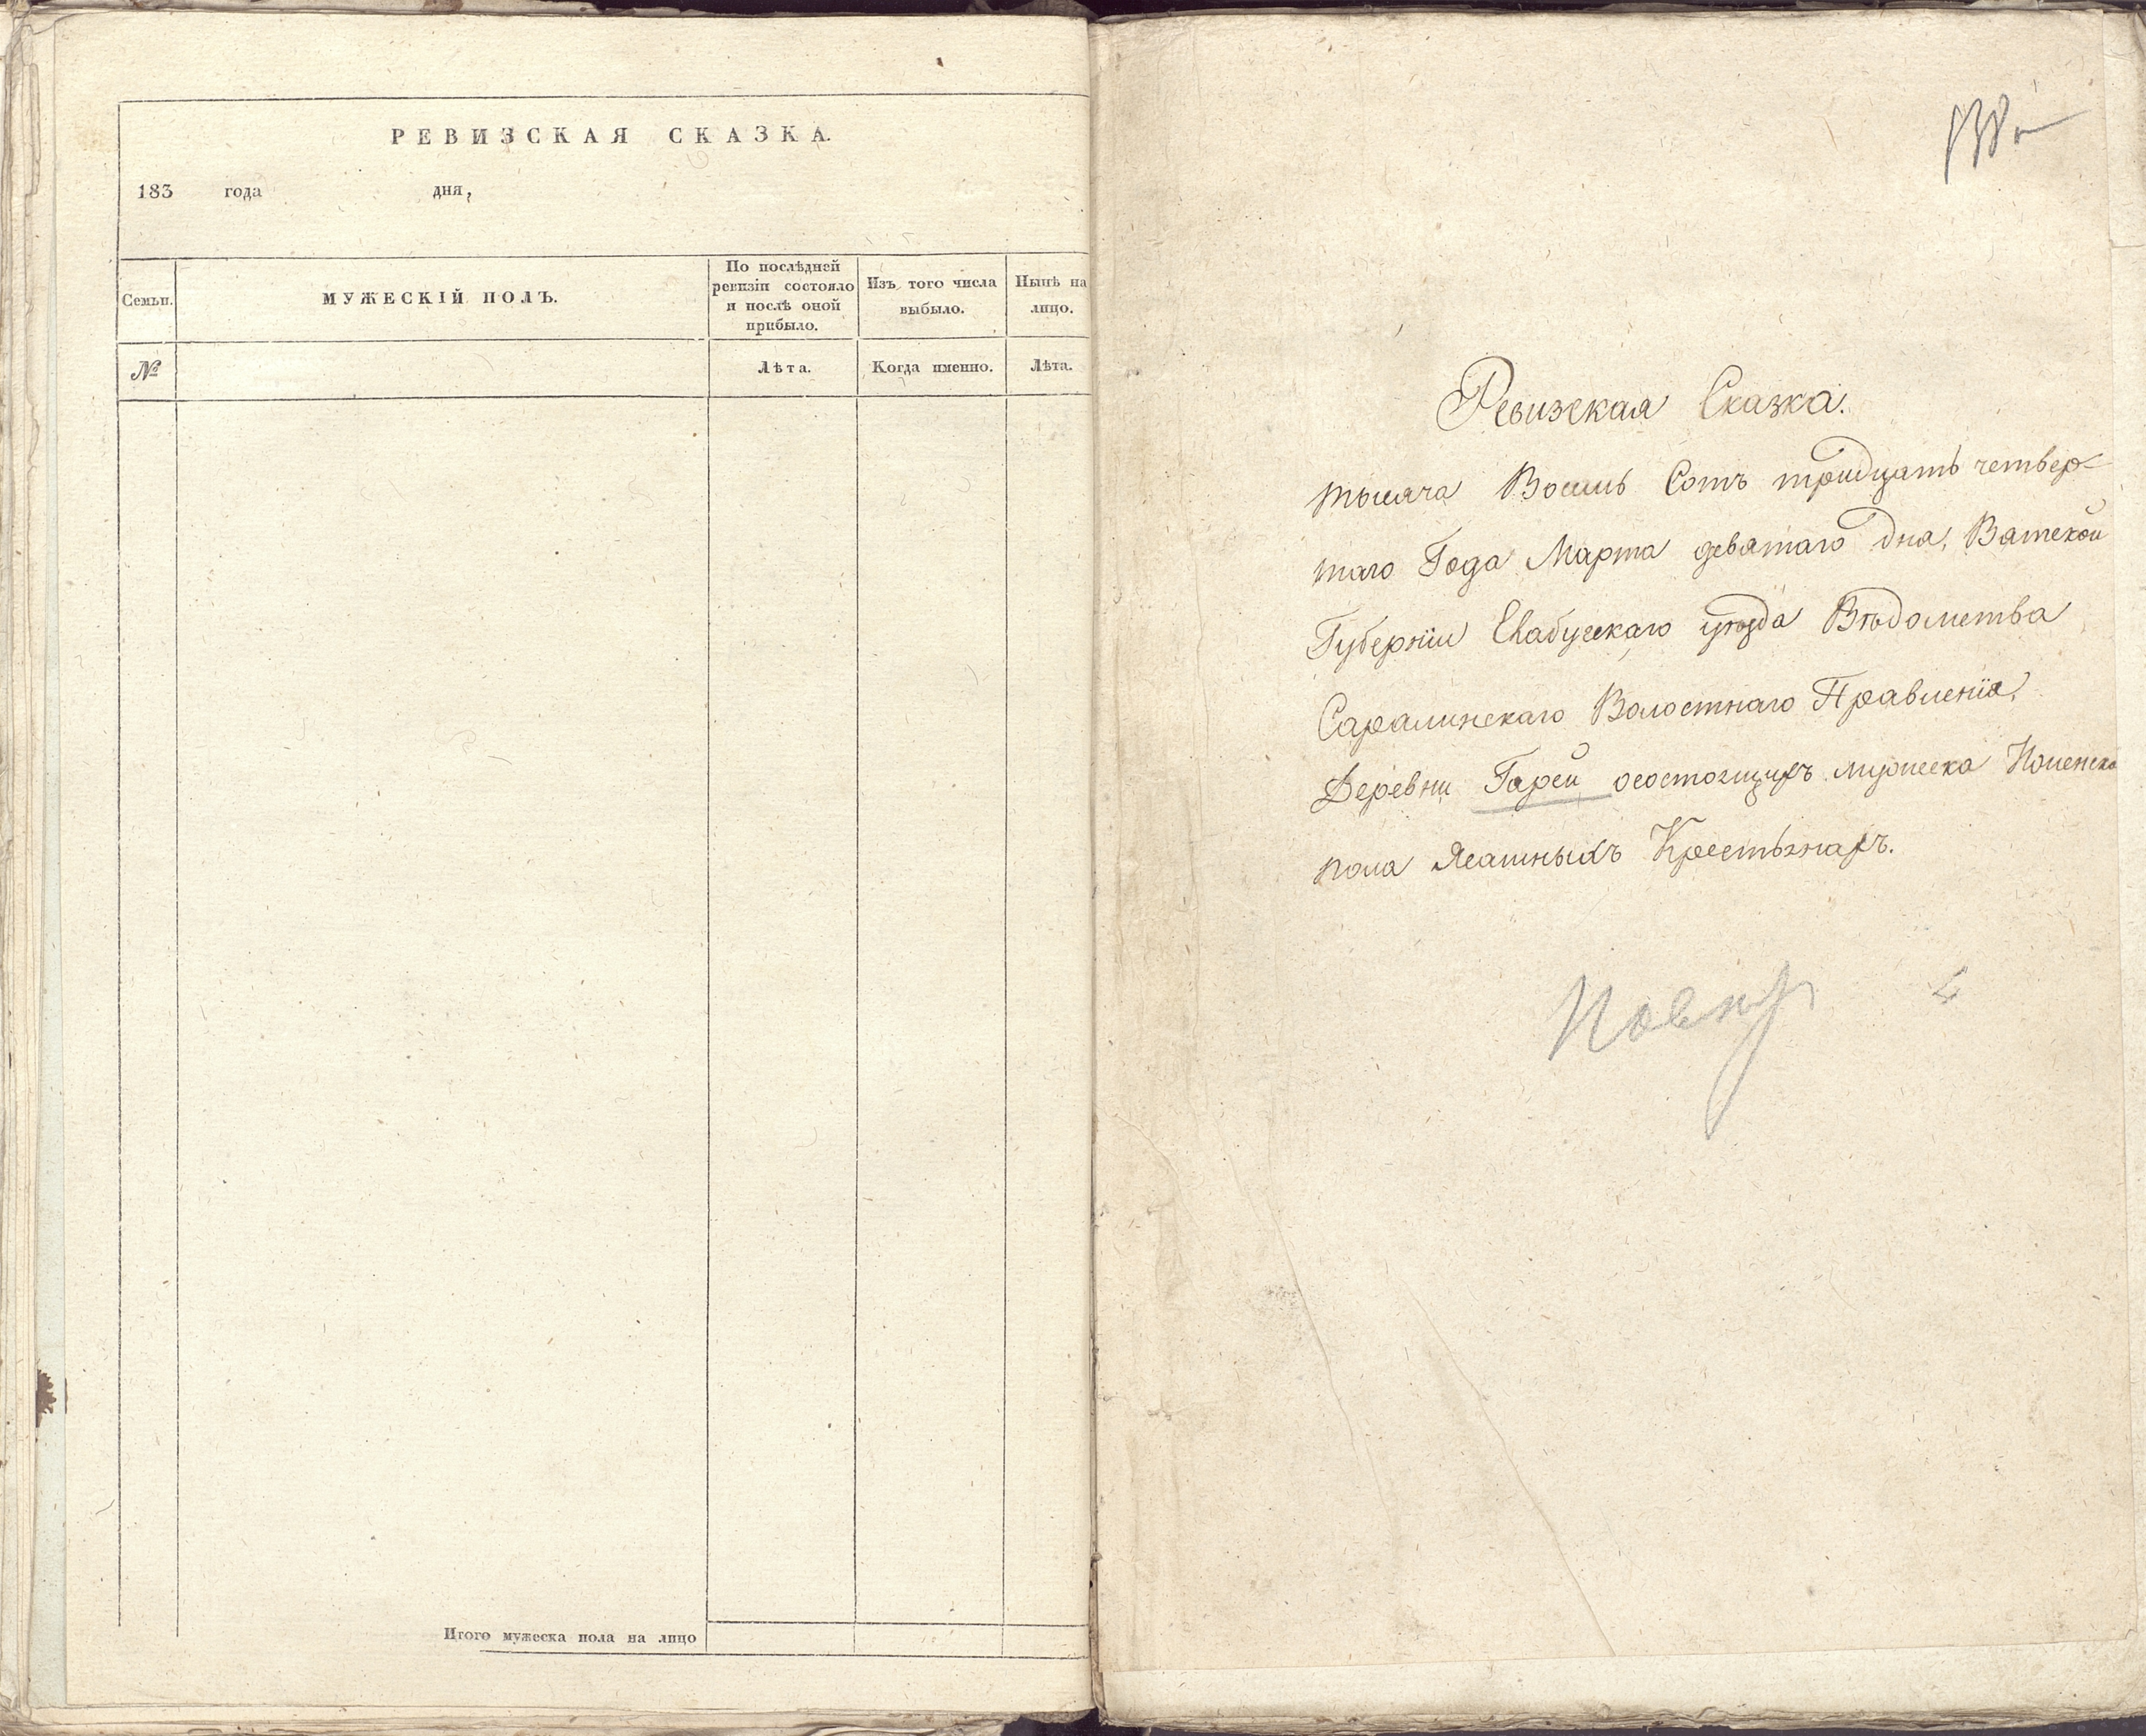 РЕВИЗСКАЯ СКАЗКА.
183 года дня,
Семьи.
МУЖЕСКІЙ ПОЛЪ.
По послѣдней
ревизіи состояло
и послѣ оной
прибыло.
Изъ того числа
выбыло.
Нынѣ на
лицо.
№
Лѣта.
Когда именно.
Лѣта.
Итого мужеска пола на лицо
Ревизская Сказка.
тысяча Восемь Сотъ тридцать четвер-
таго Года Марта девятаго дня, Вятской
Губерніи Елабугскаго уѣзда Вѣдомства
Саралинскаго Волостнаго Правленія,
Деревни Гарей осостоящихъ мужеска Иженска
пола Ясашныхъ Крестьянахъ.